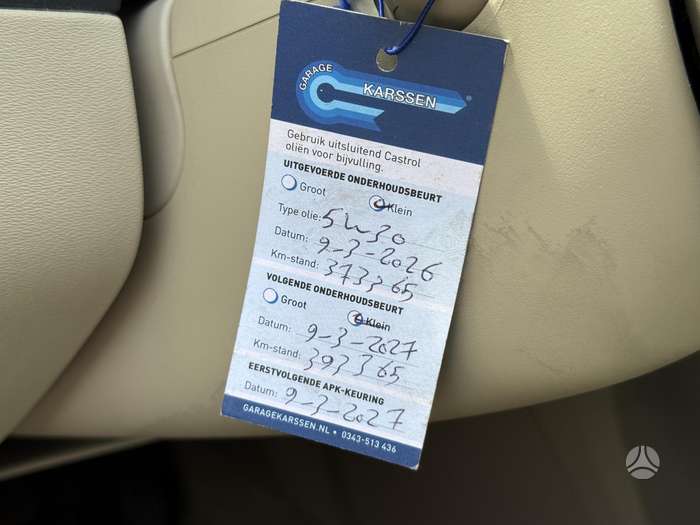 GARAGE
KARSSEN
Gebruik uitsluitend Castrol
oliën voor bijvulling.
UITGEVOERDE ONDERHOUDSBEURT
Groot Klein
Type olie: 5W30
Datum: 9-3-2026
Km-stand: 373365
VOLGENDE ONDERHOUDSBEURT
Groot Klein
Datum: 9-3-2027
Km-stand: 393365
EERSTVOLGENDE APK-KEURING
Datum: 9-3-2027
GARAGEKARSSEN.NL • 0343-513 436